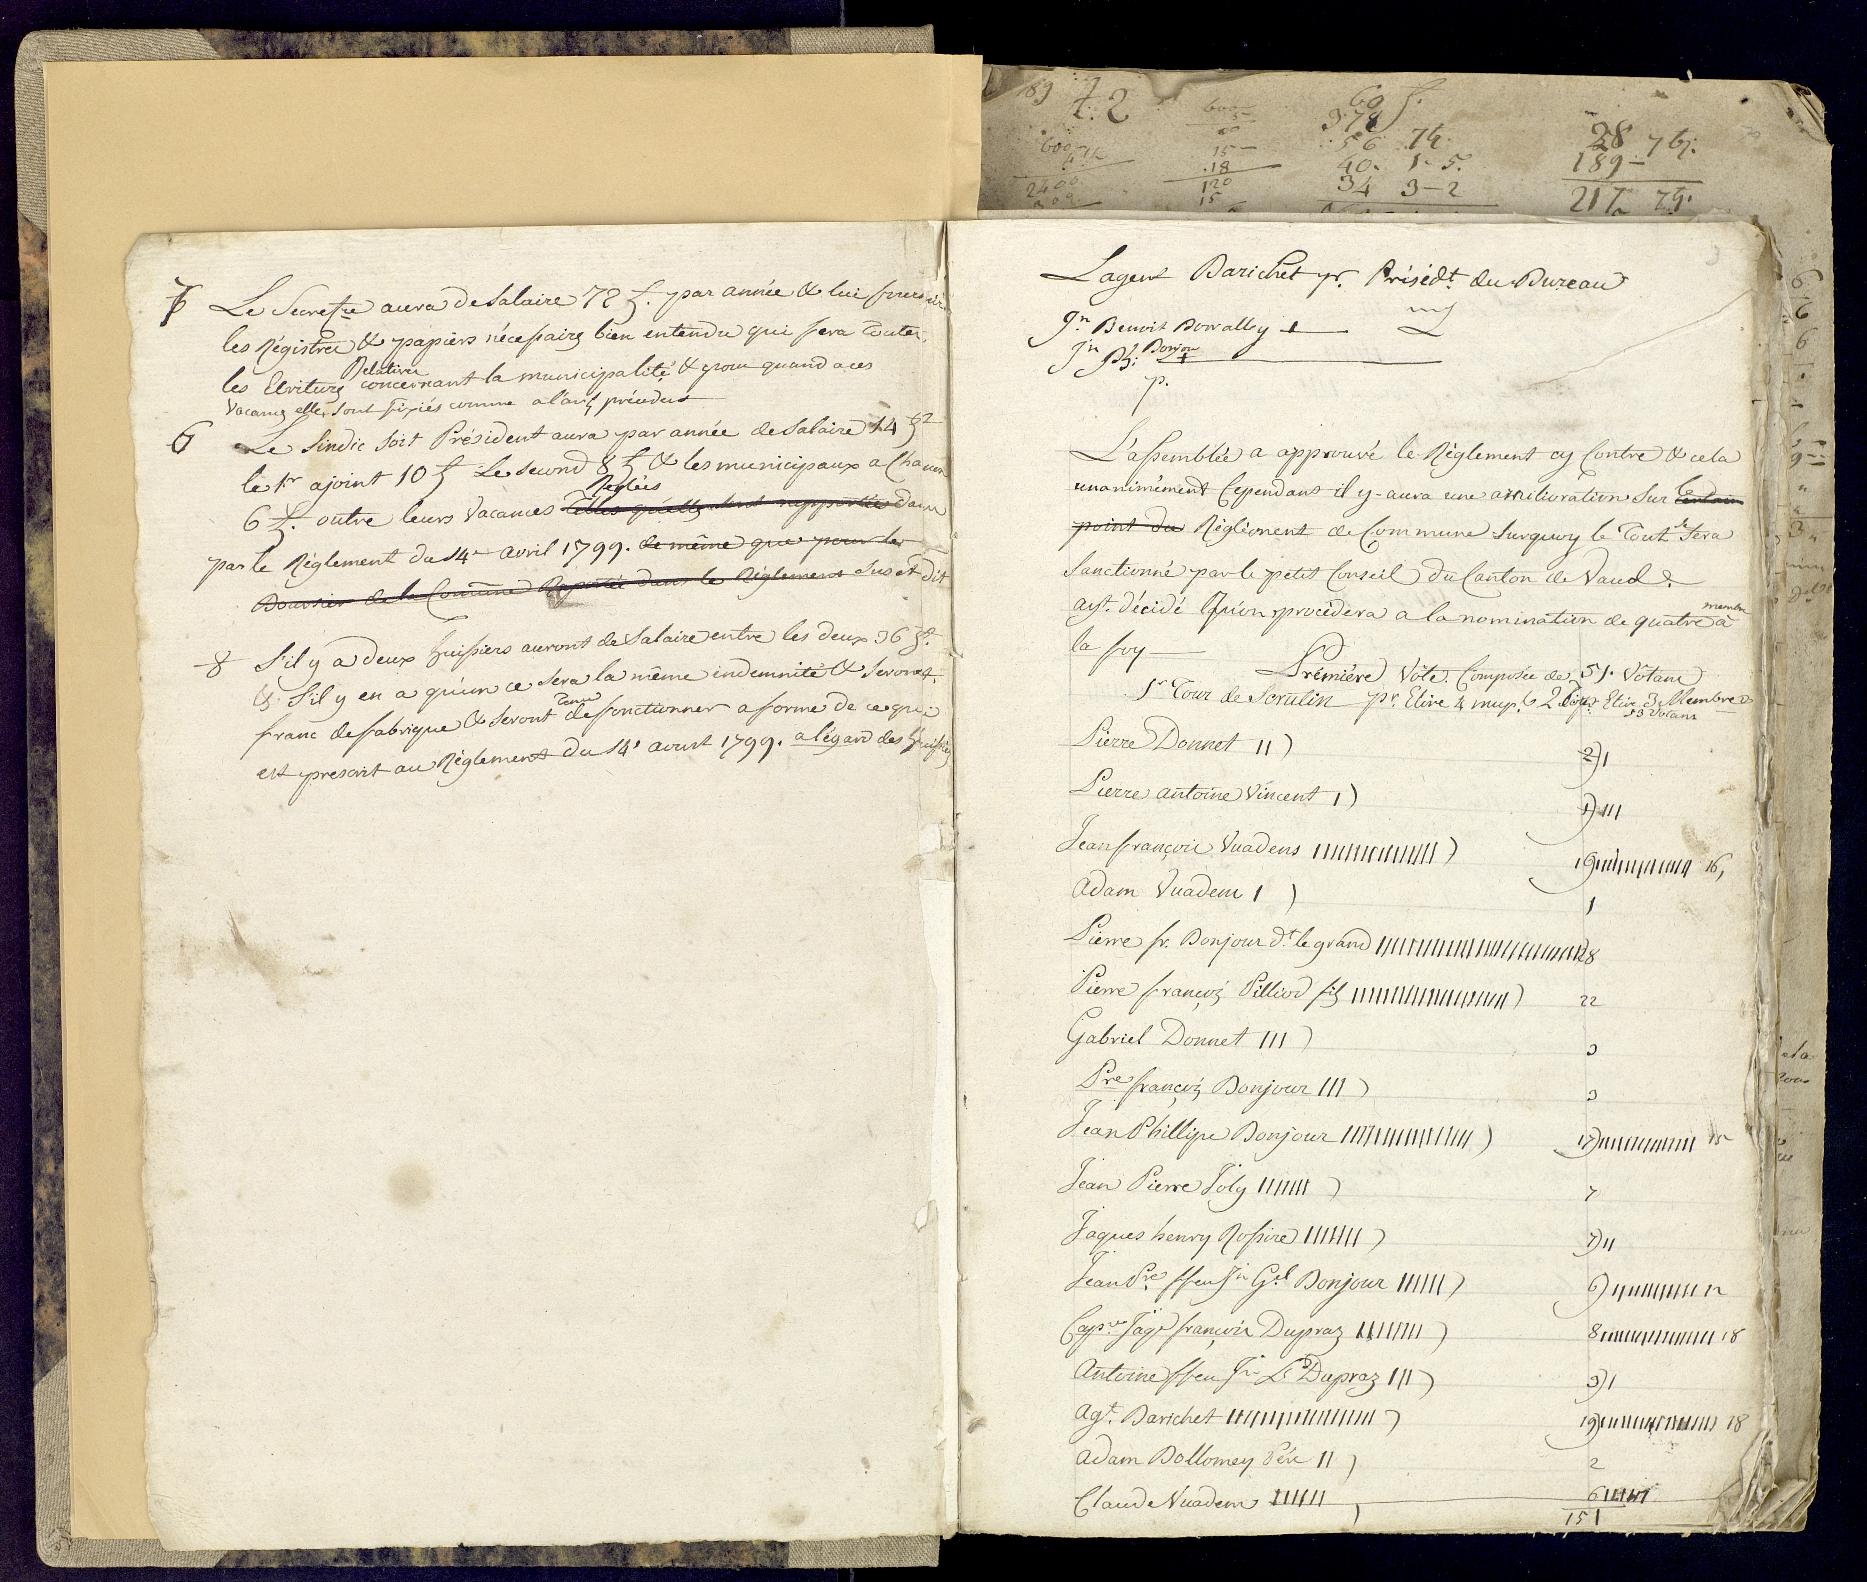 7 Le Secret.re aura de Salaire 72 f. par année & lui fournir
les Régistres & papiers nécessaires bien entendu qui fera Toutes
Relatives
les Ecritures concernant la municipalité & pour quand a ces
Vacances elles sont fixées comme a l'art. précédent
6 Le Sindic soit Président aura par année de Salaire 14 f
le 1.r ajoint 10 f Le Second 8 f & les municipaux a Chacun
Reglées
6 f. outre leurs Vacances telles qu'elles sont rapportées dans
par le Réglement du 14e avril 1799. de même que pour les
Boursier de la Commune Raportée dans le Réglement Sus et dit
8 S'il y a deux huissiers auront de Salaire entre les deux 36 f.
& S'il y en a qu'un ce sera la même indemnité & Seront
Tenus
franc de fabrique & Seront de fonctionner a forme de ce qui
est prescrit au Réglement du 14e avril 1799. a légard des huissiers
189 f. 2
600
5
60 f.
378
600
15
18
120
15
2400
56 74.
40. 1-5.
34 3-2
28 76.
189 -
217 79.
3
L'agent Barichet pr. Présidt. du Bureau
Jn Benoit Borralley
Jn Ph: Bonjour
p.
L'assemblée a approuvé le Réglement cy Contre & cela
le
unanimément Cependant il y aura une amélioration Sur certain
point du Réglement de Commune Surquoy le Tout Sera
Sanctionné par le petit Conseil du Canton de Vaud.
membres
ayt. décidé Qu'on procédera a la nomination de quatre à
la foy
Prémière Vote Composée de 51. Votans
1r Tour de Scrutin pr. Elire 4 mup. 6 2 Tour pr. Elire 3 Membres
43 Votans
Pierre Donnet II ) 2) I
Pierre antoine Vincent I ) 1) III
Jean françois Vuadens IIIIIIIIIIIIIII ) 19 IIIIIIIIIIIIIII 16,
Adam Vuadens I ) 1
Pierre fr. Bonjour dt. le grand IIIIIIIIIIIIIIIIIIIIIIIIIIII 28
Pierre françois Pilliod fils IIIIIIIIIIIIIIIIIIIIII ) 22
Gabriel Donnet III ) 3
Pre françois Bonjour III ) 3
Jean Phillipe Bonjour IIIIIIIIIIIIIIIII ) 17) IIIIIIIIIIIIIII 15
Jean Pierre Joly IIIIIII ) 7
Jaques henry Rossire IIIIIII ) 7) II
Jean Pre ffeu Jn Gel Bonjour IIIIII ) 6) IIIIIIIIIIII 12
Capne Jaqs françois Dupraz IIIIIIII ) 8 IIIIIIIIIIIIIIIIII 18
Antoine ffeu Jn Ls Dupraz III ) 3) I
Agt. Barichet IIIIIIIIIIIIIIIIIII ) 19) IIIIIIIIIIIIIIIIII 18
Adam Bollomey Pére II ) 2
Claude Vuadens IIIIII ) 6 IIIIII
151